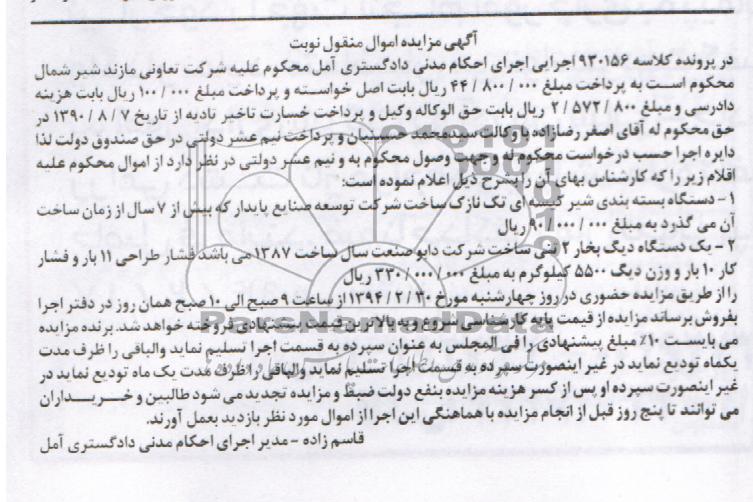 آگهی مزایده اموال منقول نوبت
در پرونده کلاسه ۹۳۰۱۵۶ اجرایی اجرای احکام مدنی دادگستری آمل محکوم علیه شرکت تعاونی مازند شیر شمال
محکوم است به پرداخت مبلغ ۴۴/۸۰۰/۰۰۰ ریال بابت اصل خواسته و پرداخت مبلغ ۱۰۰/۰۰۰ ریال بابت هزینه
دادرسی و مبلغ ۲/۵۷۲/۸۰۰ ریال بابت حق الوکاله وکیل و پرداخت خسارت تاخیر تادیه از تاریخ ۱۳۹۰/۸/۷ در
حق محکوم له آقای اصغر رضازاده با وکالت سید محمد حسینیان و پرداخت نیم عشر دولتی در حق صندوق دولت لذا
دایره اجرا حسب درخواست محکوم له و جهت وصول محکوم به و نیم عشر دولتی در نظر دارد از اموال محکوم علیه
اقلام زیر را که کارشناس بهای آن را بشرح ذیل اعلام نموده است:
۱- دستگاه بسته بندی شیر کیسه ای تک نازک ساخت شرکت توسعه صنایع پایدار که بیش از ۷ سال از زمان ساخت
آن می گذرد به مبلغ ۹۰/۰۰۰/۰۰۰ ریال
۲- یک دستگاه دیگ بخار ۲ تنی ساخت شرکت دابو صنعت سال ساخت ۱۳۸۷ می باشد فشار طراحی ۱۱ بار و فشار
کار ۱۰ بار و وزن دیگ ۵۵۰۰ کیلوگرم به مبلغ ۳۳۰/۰۰۰/۰۰۰ ریال
را از طریق مزایده حضوری در روز چهارشنبه مورخ ۱۳۹۴/۲/۳۰ از ساعت ۹ صبح الی ۱۰ صبح همان روز در دفتر اجرا
بفروش برساند مزایده از قیمت پایه کارشناسی شروع و به بالاترین قیمت پیشنهادی فروخته خواهد شد. برنده مزایده
می بایست ۱۰٪ مبلغ پیشنهادی را فی المجلس به عنوان سپرده به قسمت اجرا تسلیم نماید والباقی را ظرف مدت
یکماه تودیع نماید در غیر اینصورت سپرده به قسمت اجرا تسلیم نماید والباقی را ظرف مدت یک ماه تودیع نماید در
غیر اینصورت سپرده او پس از کسر هزینه مزایده بنفع دولت ضبط و مزایده تجدید می شود طالبین و خریداران
می توانند تا پنج روز قبل از انجام مزایده با هماهنگی این اجرا از اموال مورد نظر بازدید بعمل آورند.
قاسم زاده - مدیر اجرای احکام مدنی دادگستری آمل
ParsNamadData